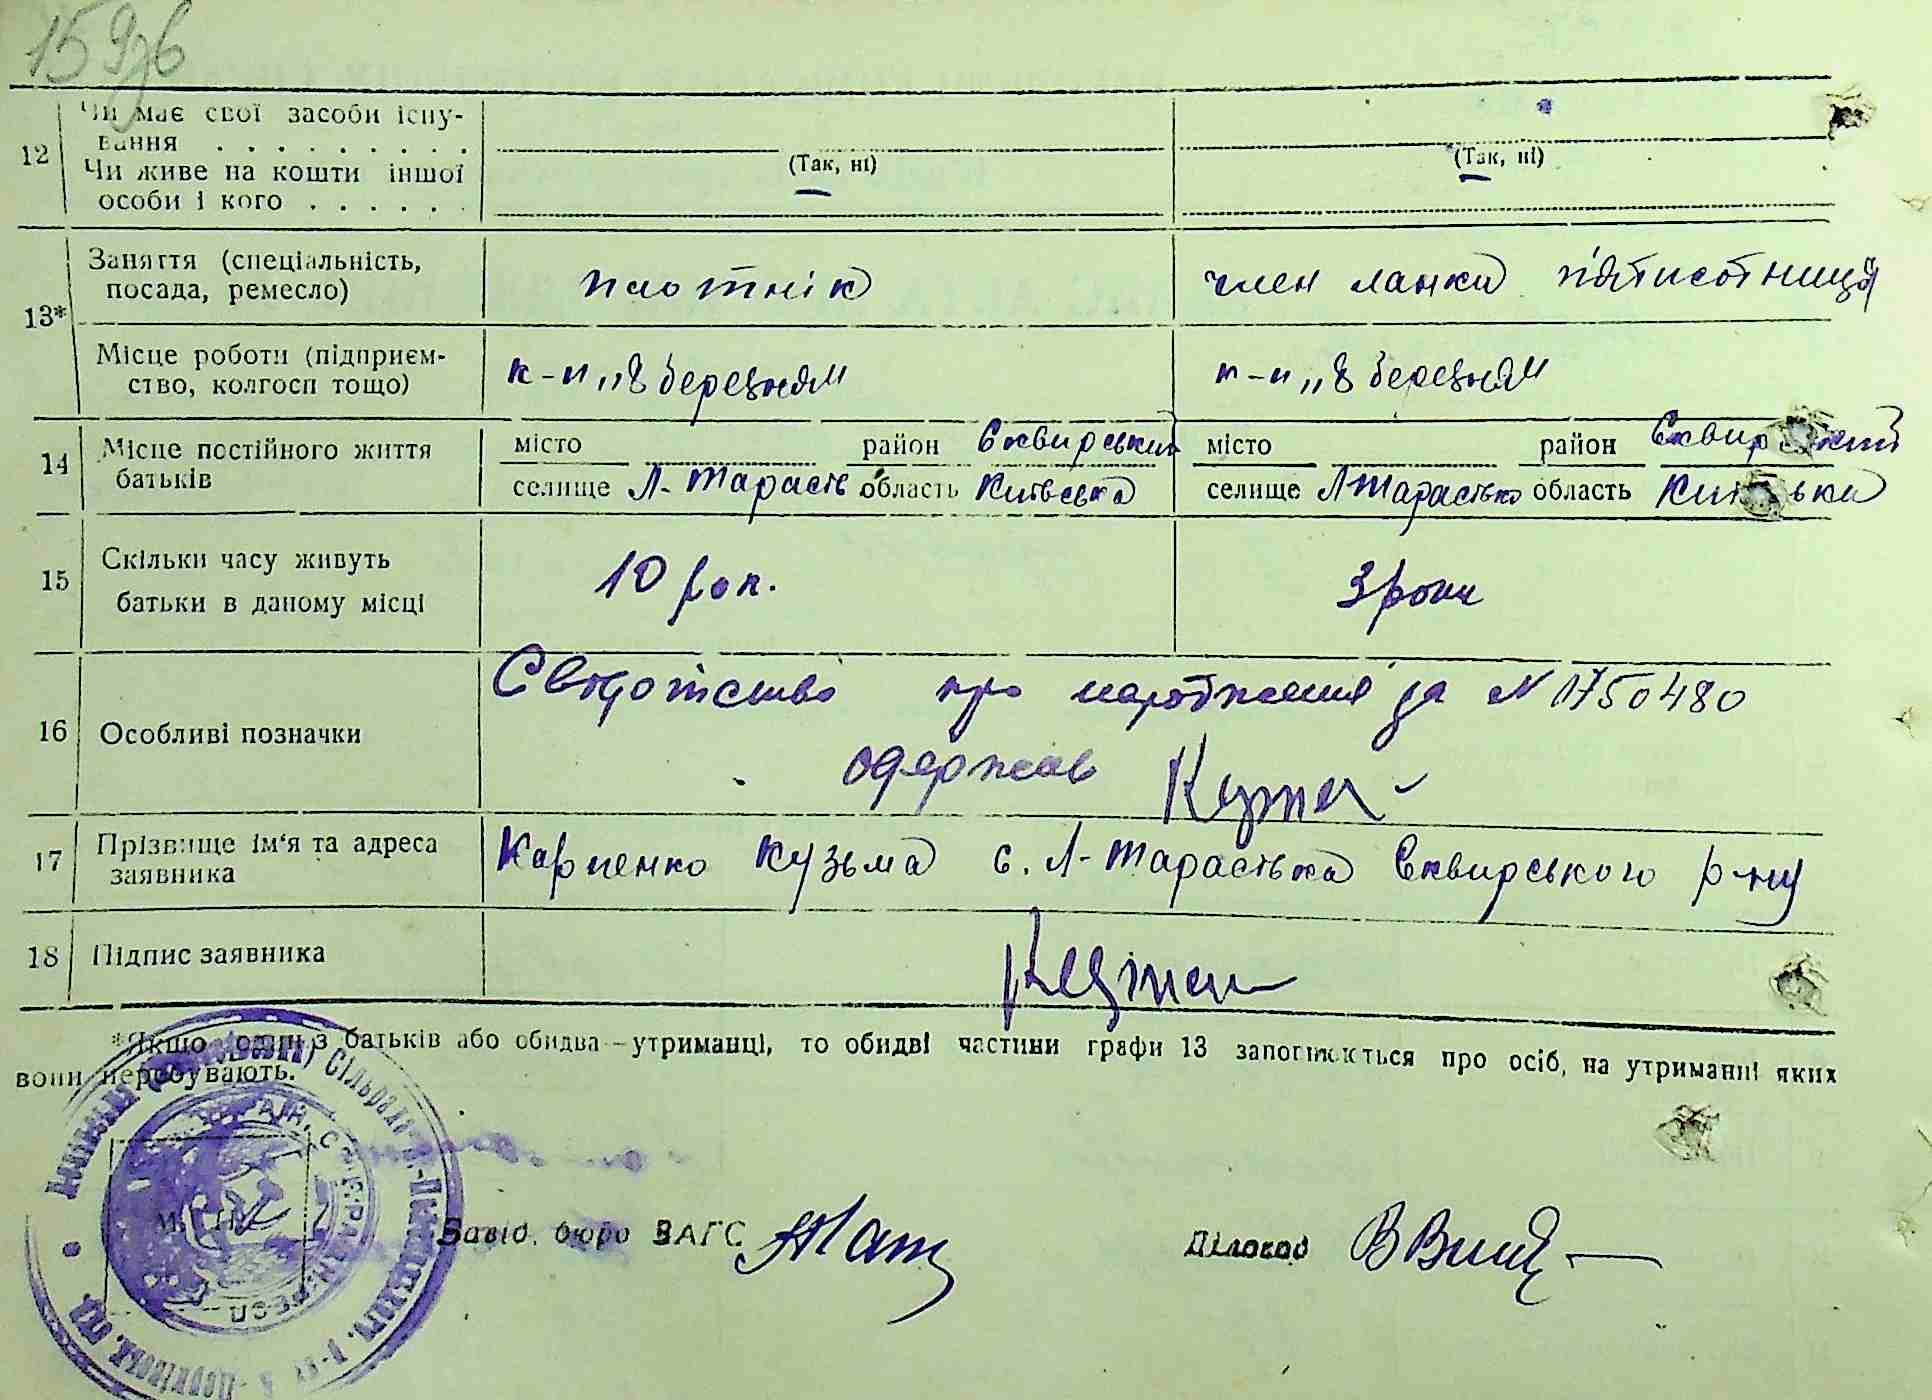 159
12 Чи має свої засоби існу-
вання . . . . . . . . .
(Так, ні) (Так, ні)
Чи живе на кошти іншої
особи і кого . . . . . .
13* Заняття (спеціальність,
посада, ремесло)
плотнік член ланки пятисотниця
Місце роботи (підприєм-
ство, колгосп тощо)
к-п „8 березня" к-п „8 березня"
14 Місце постійного життя
батьків
місто район Сквирський місто район Сквирський
селище Л-Тарасів область Київська селище Л Тарасівка область Київська
15 Скільки часу живуть
батьки в даному місці
10 рок. 3 роки
16 Особливі позначки
Свідотство про народження за N 1750480
одержав
17 Прізвище ім'я та адреса
заявника
Карпенко Кузьма с. Л-Тарасівка Сквирського р-ну
18 Підпис заявника
*Якщо один з батьків або обидва—утриманці, то обидві частини графи 13 заповнюються про осіб, на утриманні яких
вони перебувають.
М. П.
Завід. бюро ЗАГС
Діловод